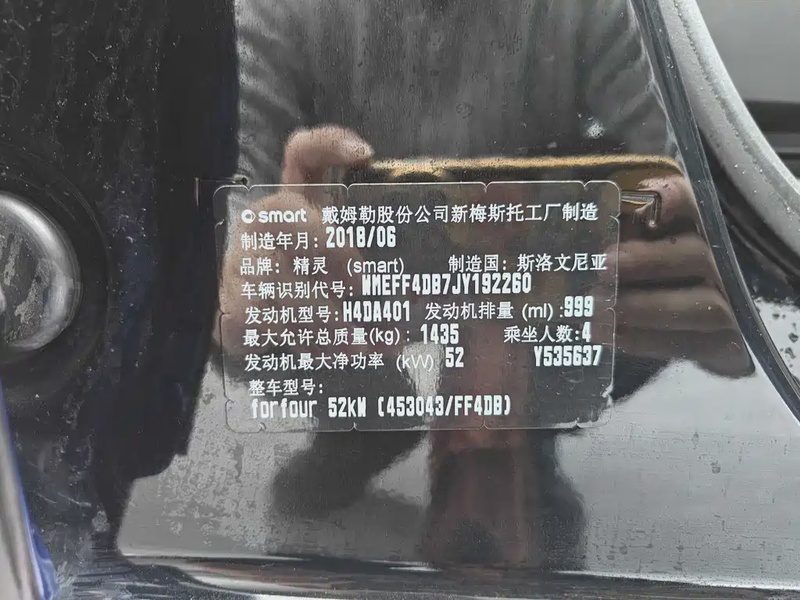 smart 戴姆勒股份公司新梅斯托工厂制造
制造年月: 2018/06
品牌: 精灵 (smart) 制造国: 斯洛文尼亚
车辆识别代号: WMEFF4DB7JY192260
发动机型号: H4DA401 发动机排量 (ml) :999
最大允许总质量(kg): 1435 乘坐人数:4
发动机最大净功率 (kW) 52 Y535637
整车型号:
forfour 52kW (453043/FF4DB)